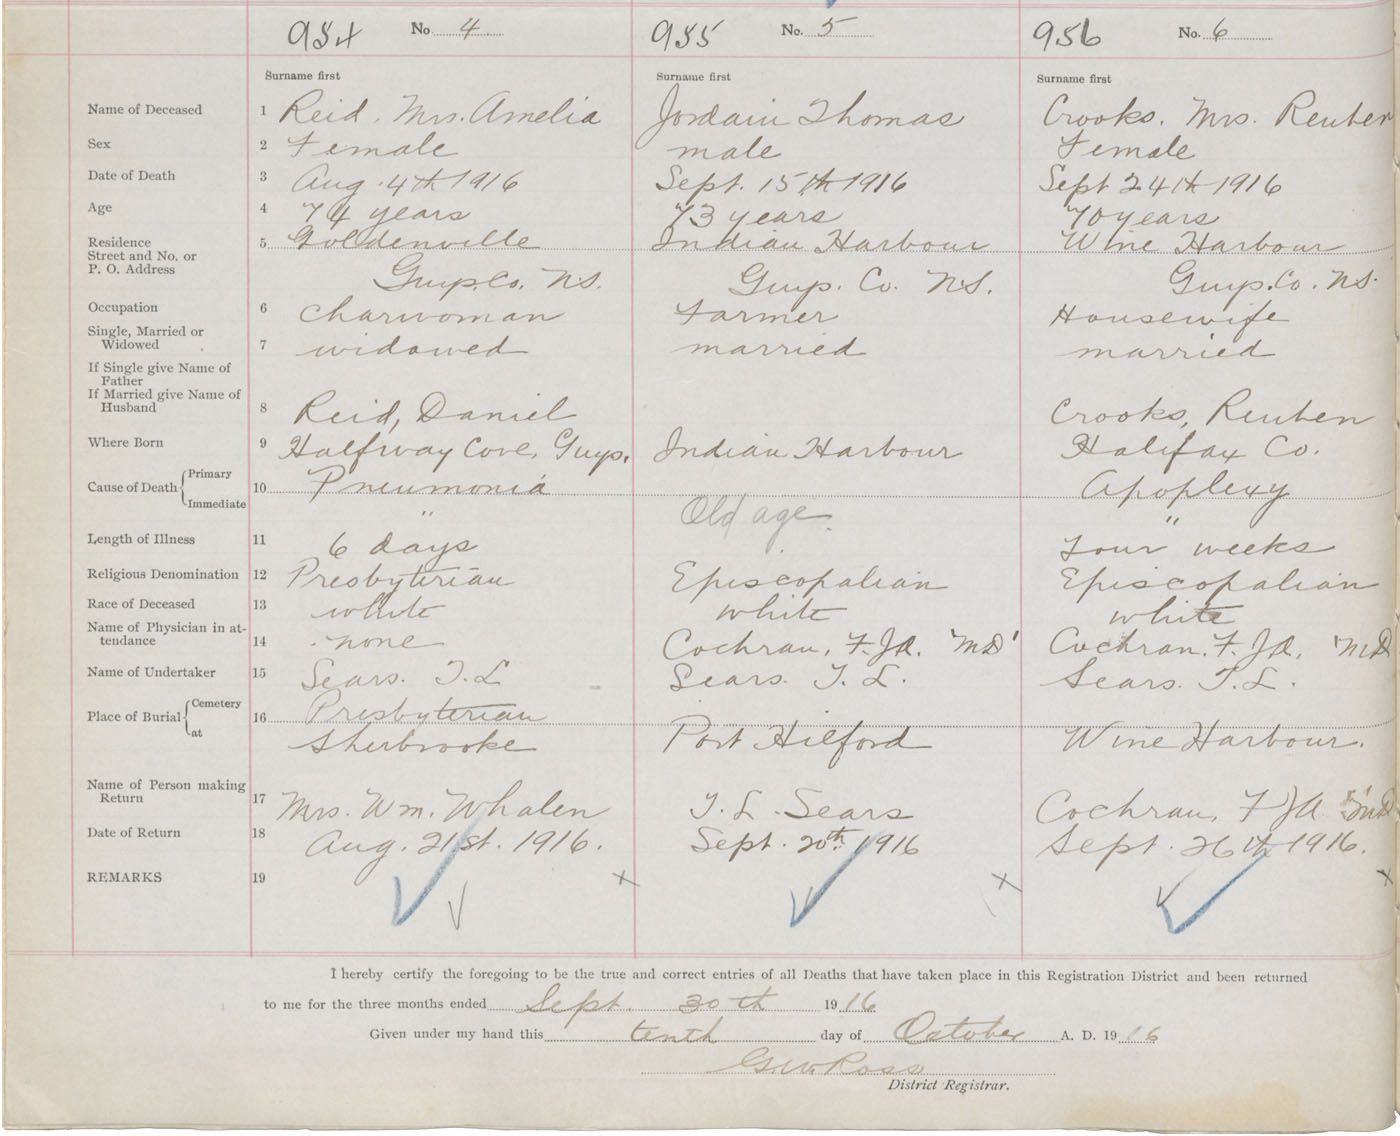 954 No. 4 955 No. 5 956 No. 6
Surname first Surname first Surname first
Name of Deceased 1 Reid, Mrs. Amelia Jordain Thomas Crooks, Mrs. Reuben
Sex 2 Female male Female
Date of Death 3 Aug. 4th 1916 Sept. 15th 1916 Sept 24th 1916
Age 4 74 years 73 years 70 years
Residence 5 Goldenville Indian Harbour Wine Harbour
Street and No. or
P. O. Address Guys. Co. N.S. Guys. Co. N.S. Guys. Co. N.S.
Occupation 6 charwoman Farmer Housewife
Single, Married or
Widowed 7 widowed married married
If Single give Name of
Father
If Married give Name of
Husband 8 Reid, Daniel Crooks, Reuben
Where Born 9 Halfway Cove, Guys. Indian Harbour Halifax Co.
Cause of Death { Primary 10 Pneumonia Apoplexy
Immediate " Old age "
Length of Illness 11 6 days Four weeks
Religious Denomination 12 Presbyterian Episcopalian Episcopalian
Race of Deceased 13 white white white
Name of Physician in at-
tendance 14 none Cochran, F. JA. 'MD' Cochran, F. JA. 'MD
Name of Undertaker 15 Sears. T. L Sears. T. L. Sears. T. L.
Place of Burial { Cemetery 16 Presbyterian
at Sherbrooke Port Hilford Wine Harbour.
Name of Person making
Return 17 Mrs. Wm. Whalen T. L. Sears Cochran, F JA 'MD
Date of Return 18 Aug. 21st. 1916. Sept. 20th. 1916 Sept. 26th 1916.
REMARKS 19
I hereby certify the foregoing to be the true and correct entries of all Deaths that have taken place in this Registration District and been returned
to me for the three months ended Sept. 30th 1916
Given under my hand this tenth day of October A. D. 1916
G.W. Ross
District Registrar.